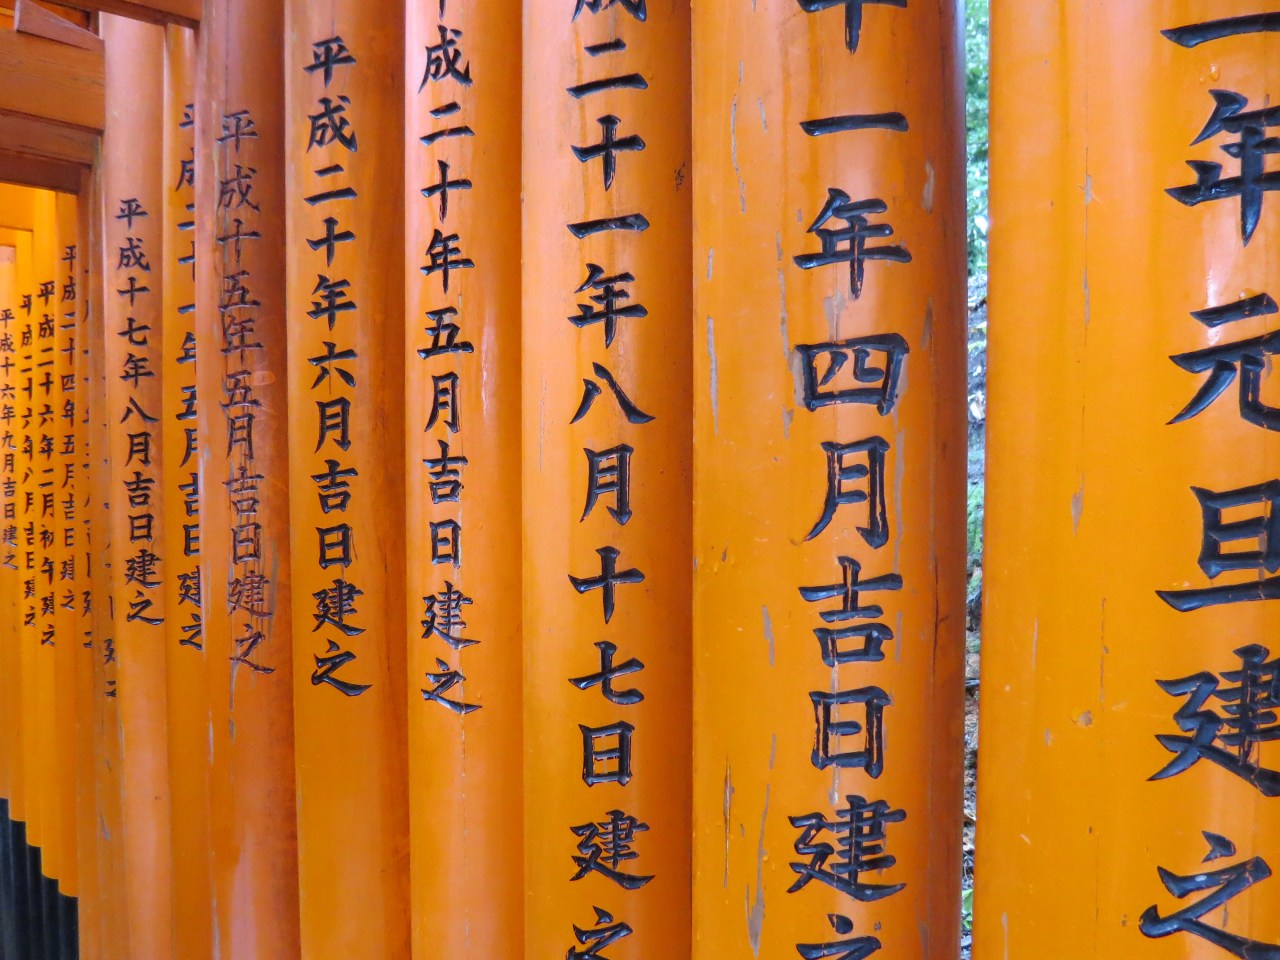 一年元旦建之
十一年四月吉日建之
成二十一年八月十七日建之
平成二十年五月吉日建之
平成二十年六月吉日建之
平成十五年五月吉日建之
平成二十一年五月吉日建之
平成十七年八月吉日建之
平成二十四年五月吉日建之
平成二十六年二月初午建之
平成二十六年八月吉日建之
平成十六年九月吉日建之